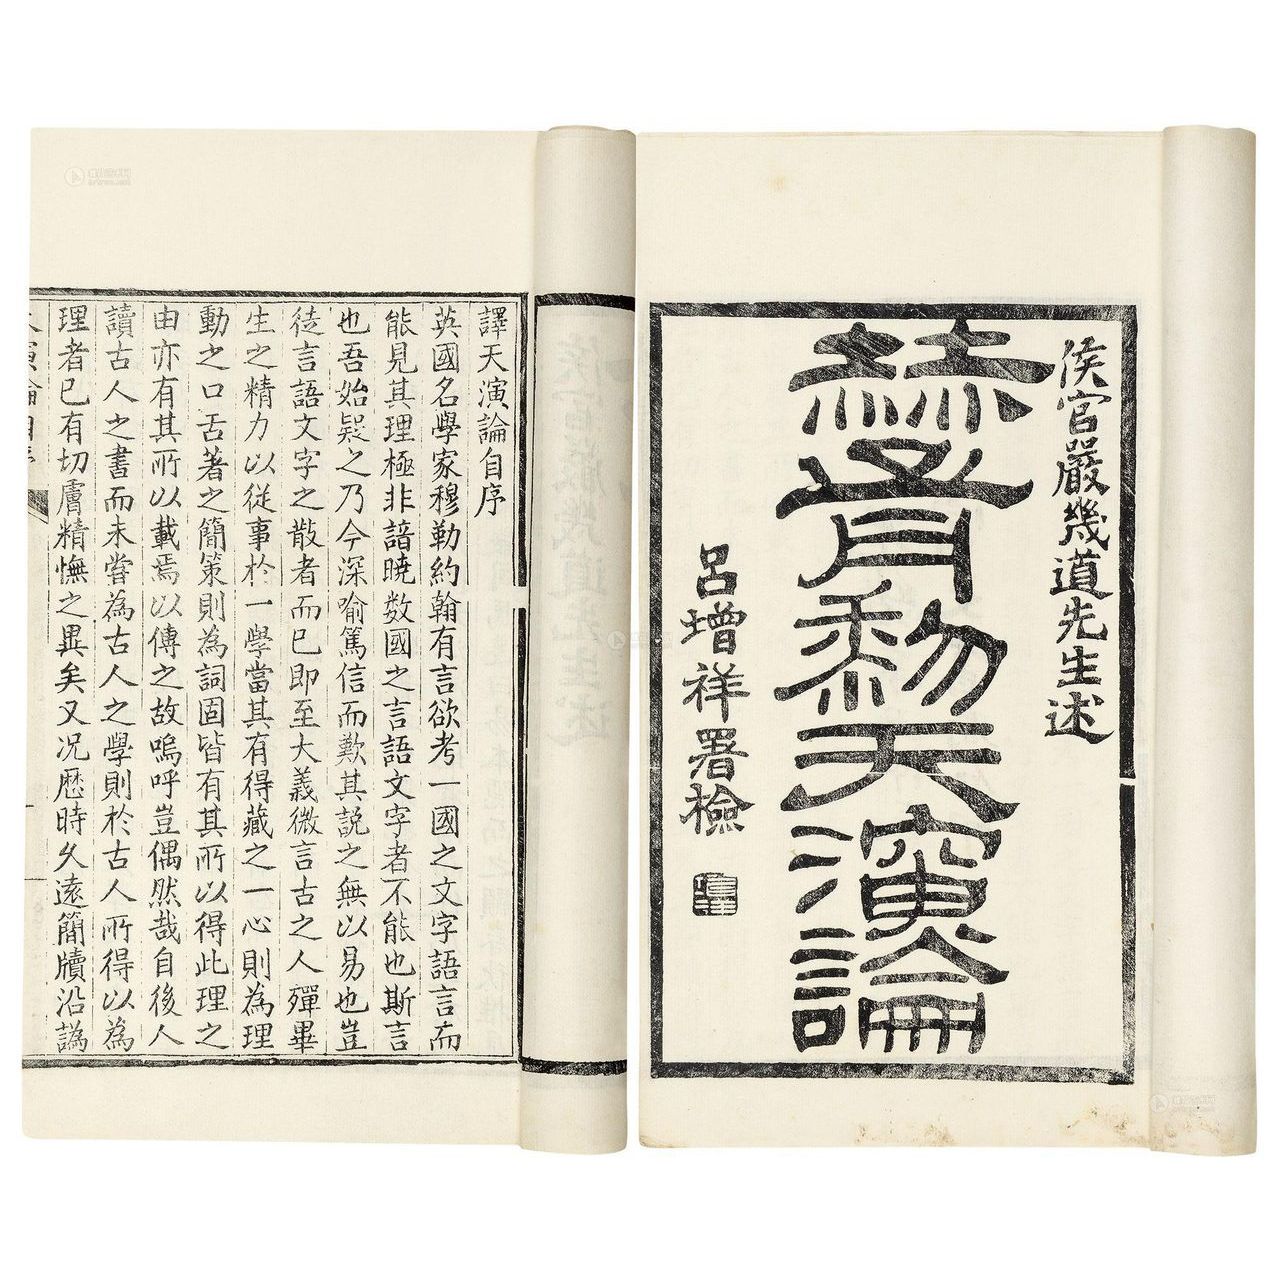 侯官嚴幾道先生述
赫胥黎天演論
呂增祥署檢
譯天演論自序
英國名學家穆勒約翰有言欲考一國之文字語言而
能見其理極非諳曉數國之言語文字者不能也斯言
也吾始疑之乃今深喻篤信而歎其説之無以易也豈
徒言語文字之散者而已即至大義微言古之人殫畢
生之精力以從事於一學當其有得藏之一心則為理
動之口舌著之簡策則為詞固皆有其所以得此理之
由亦有其所以載焉以傳之故嗚呼豈偶然哉自後人
讀古人之書而未嘗為古人之學則於古人所得以為
理者已有切膚精憮之異矣又况歷時久遠簡牘沿譌